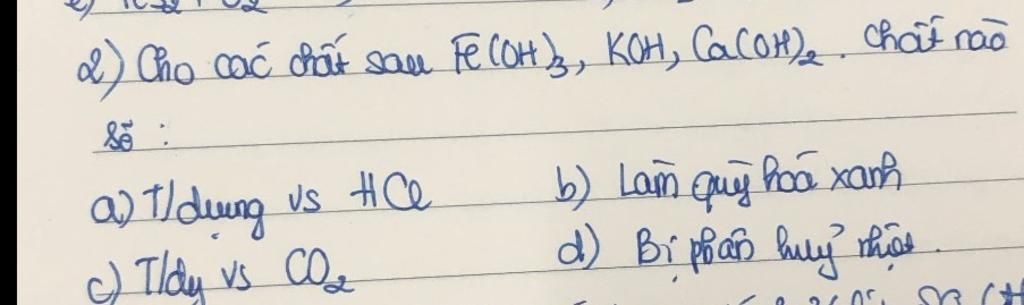 2) Cho các chất sau Fe(OH)3, KOH, Ca(OH)2. Chất nào
sẽ :
a) T/dụng vs HCl
b) Làm quỳ hoá xanh
c) T/dụ vs CO2
d) Bị phân huỷ nhiệt.